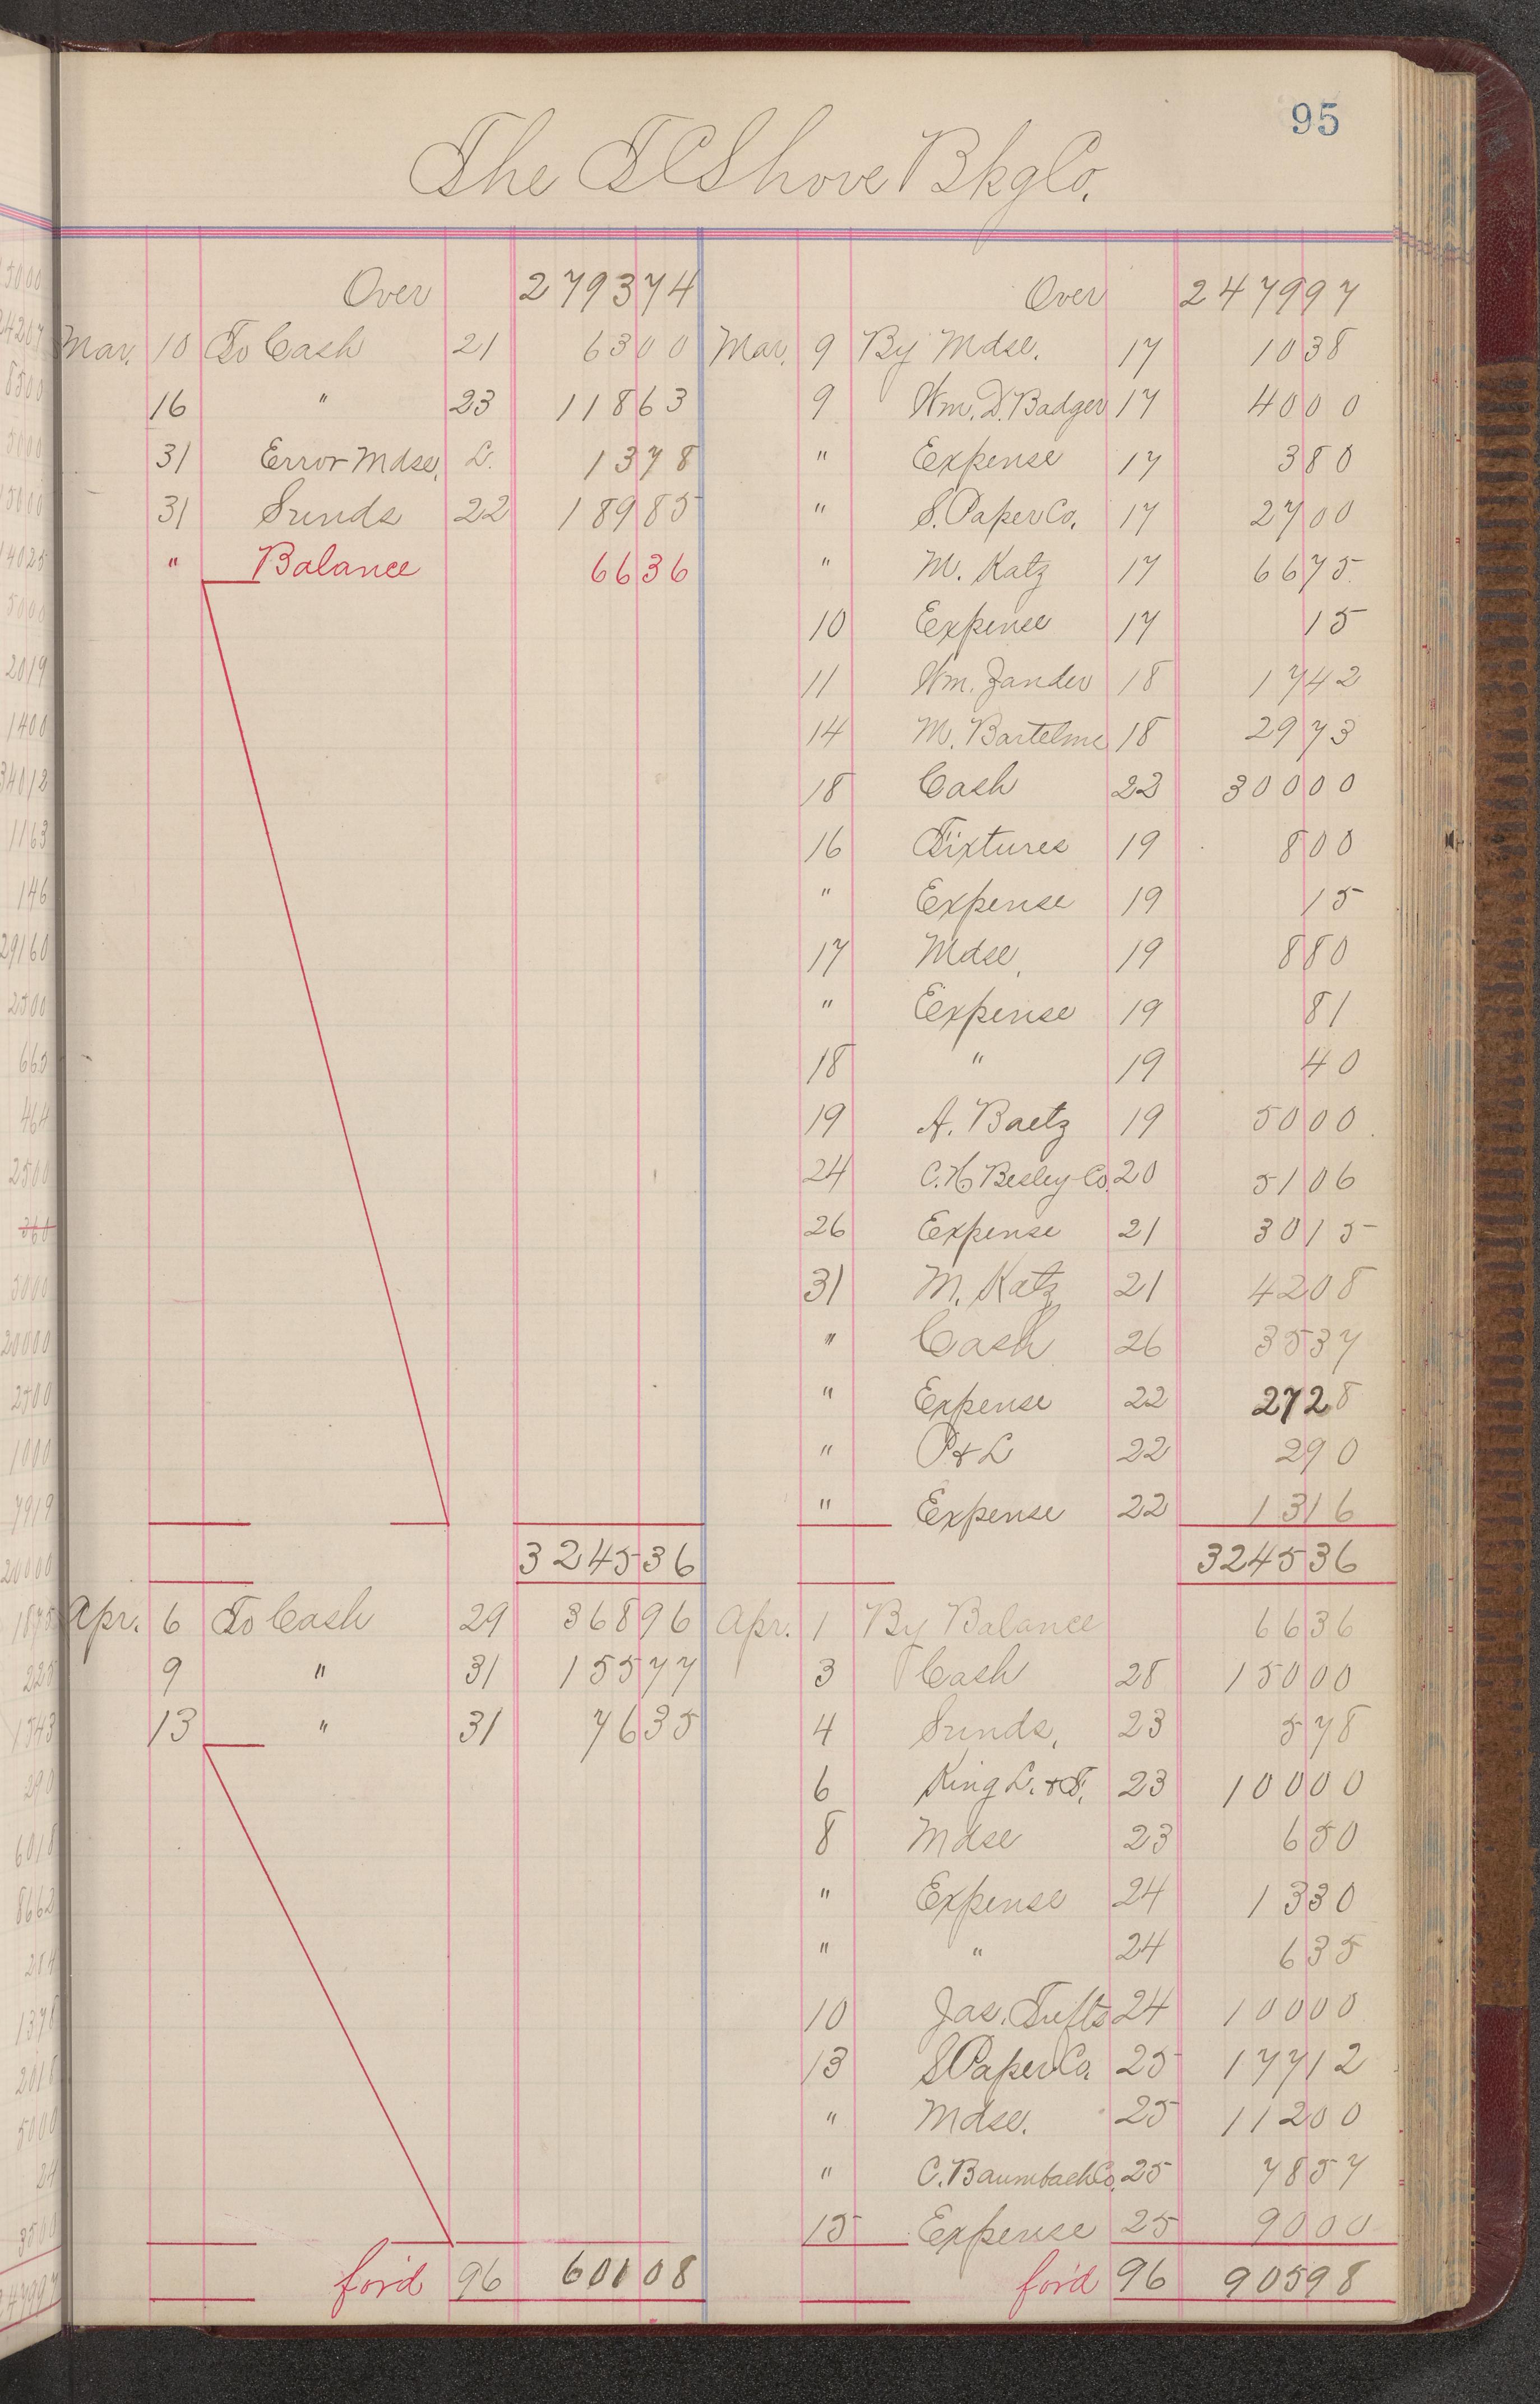 95
The T C Shove Bkg Co.
Over 2793 74 Over 2479 97
Mar. 10 To Cash 21 63 00 Mar. 9 By Mdse. 17 10 38
16 " 23 118 63 9 Wm. D. Badger 17 40 00
31 Error Mdse. L. 13 78 " Expense 17 3 80
31 Sunds 22 189 85 " S. Paper Co. 17 27 00
" Balance 66 36 " M. Katz 17 66 75
10 Expense 17 15
11 Wm. Zander 18 17 42
14 M. Bartelme 18 29 73
18 Cash 23 300 00
16 Fixtures 19 8 00
" Expense 19 15
17 Mdse. 19 8 80
" Expense 19 81
18 " 19 40
19 A. Baetz 19 50 00
24 C. H Besley Co. 20 51 06
26 Expense 21 30 15
31 M. Katz 21 42 08
" Cash 26 35 37
" Expense 22 27 28
" P & L 22 2 90
" Expense 22 13 16
3245 36 3245 36
Apr. 6 To Cash 29 368 96 Apr. 1 By Balance 66 36
9 " 31 155 77 3 Cash 28 150 00
13 " 31 76 35 4 Sunds, 23 5 78
6 King L. & F. 23 100 00
8 Mdse 23 6 50
" Expense 24 13 30
" " 24 6 35
10 Jas. Tufts 24 100 00
13 S Paper Co. 25 177 12
" Mdse. 25 112 00
" C. Baumbach Co. 25 78 57
15 Expense 25 90 00
for'd 96 601 08 for'd 96 905 98